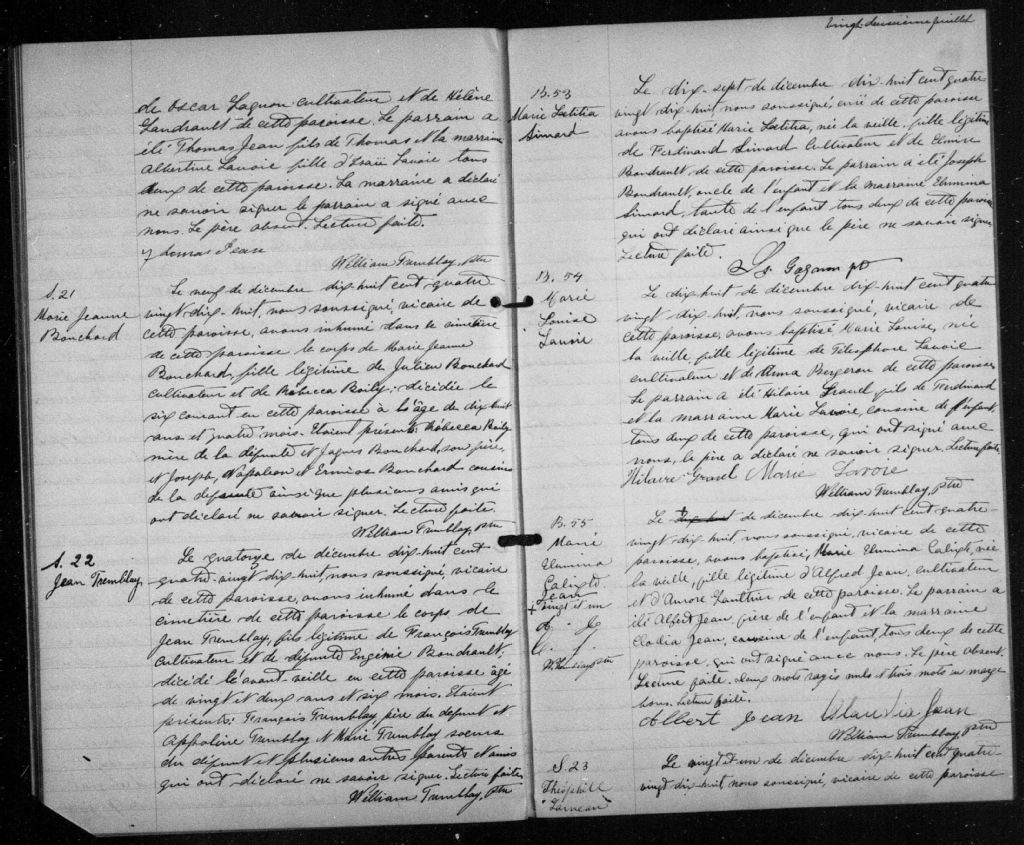 de Oscar Gagnon cultivateur et de Hélène
Gaudrault de cette paroisse. Le parrain a
été Thomas Jean fils de Thomas et la marraine
Albertine Lavoie fille d'Isaïe Lavoie tous
deux de cette paroisse. La marraine a déclaré
ne savoir signer le parrain a signé avec
nous. Le père absent. Lecture faite.
Thomas Jean
William Tremblay, ptre
S. 21
Marie Jeanne
Bouchard
Le neuf de décembre dix-huit cent quatre
vingt-dix-huit, nous soussigné, vicaire de
cette paroisse, avons inhumé dans le cimetière
de cette paroisse le corps de Marie Jeanne
Bouchard, fille légitime de Julien Bouchard
cultivateur et de Rébecca Boily, décédée le
six courant en cette paroisse à l'âge de dix-huit
ans et quatre mois. Etaient présents: Rébecca Boily
mère de la défunte et Jaques Bouchard, son frère,
et Joseph, Napoléon et Bouchard cousins
de la défunte ainsi que plusieurs amis qui
ont déclaré ne savoir signer. Lecture faite.
William Tremblay, ptre
S. 22
Jean Tremblay
Le quatorze de décembre dix-huit cent
quatre-vingt-dix-huit, nous soussigné, vicaire
de cette paroisse, avons inhumé dans le
cimetière de cette paroisse le corps de
Jean Tremblay, fils légitime de François Tremblay
cultivateur et de défunte Eugénie Boudrault,
décédé l'avant veille en cette paroisse âgé
de vingt et deux ans et six mois. Etaient
présents: François Tremblay, père du défunt et
Appoline Tremblay et Marie Tremblay soeurs
du défunt et plusieurs autres parents et amis
qui ont déclaré ne savoir signer. Lecture faite.
William Tremblay, ptre
Vingt-deuxième feuillet
B. 53
Marie Laetitia
Simard
Le dix-sept de décembre dix-huit cent quatre
vingt dix-huit, nous soussigné, curé de cette paroisse
avons baptisé Marie Laetitia, née la veille, fille légitime
de Ferdinand Simard Cultivateur et de Elmire
Boudrault de cette paroisse. Le parrain a été Joseph
Boudrault, oncle de l'enfant et la marraine Elmina
Simard, tante de l'enfant tous deux de cette paroisse
qui ont déclaré ainsi que le père ne savoir signer
Lecture faite.
Ls Gagnon ptr
B. 54
Marie
Louise
Lavoie
Le dix-huit de décembre dix-huit cent quatre
vingt-dix-huit, nous soussigné, vicaire de
cette paroisse, avons baptisé Marie Louise, née
la veille, fille légitime de Télesphore Lavoie
cultivateur et de Anna Bergeron de cette paroisse
Le parrain a été Hilaire Gravel fils de Ferdinand
et la marraine Marie Lavoie, cousine de l'enfant,
tous deux de cette paroisse, qui ont signé avec
nous, le père a déclaré ne savoir signer. Lecture faite
Hilaire Gravel Marie Lavoie
William Tremblay, ptre
B. 55
Marie
Elumina
Calixte
Jean
+ vingt et un
W. Tremblay ptre
Le de décembre dix-huit cent quatre-
vingt-dix-huit, nous soussigné, vicaire de cette
paroisse, avons baptisé, Marie Elumina Calixte, née
la veille, fille légitime d'Alfred Jean, cultivateur
et d'Aurore Gauthier de cette paroisse. Le parrain a
été Albert Jean, frère de l'enfant et la marraine
Clodia Jean, de l'enfant, tous deux de cette
paroisse, qui ont signé avec nous. Le père absent.
Lecture faite. Deux mots rayés nuls et trois mots en marge
bons. Lecture faite.
Albert Jean Claudia Jean
William Tremblay, ptre
S. 23
Théophile
Le vingt et un de décembre dix-huit cent quatre
vingt-dix-huit, nous soussigné, vicaire de cette paroisse